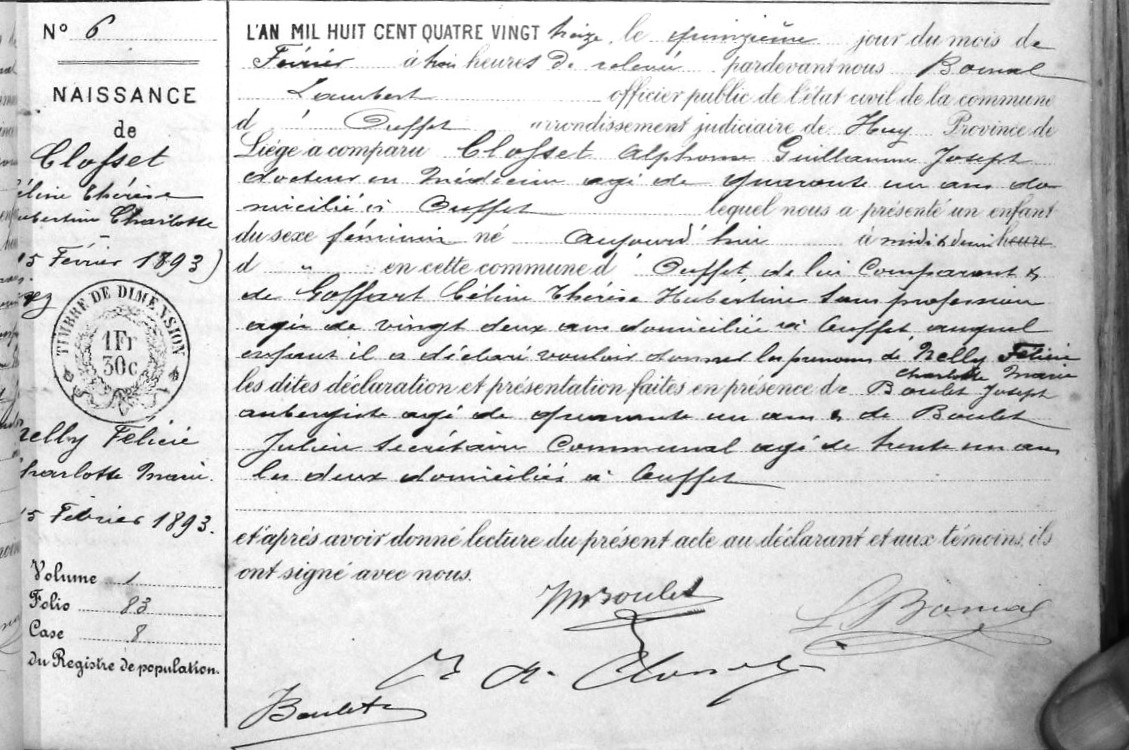 N° 6
NAISSANCE
de
Closset
éline Thérèse
ubertine Charlotte
15 Février 1893)
TIMBRE DE DIMENSION
1Fr
30c
Nelly Félicie
Charlotte Marie.
15 Février 1893.
Volume 1
Folio 83
Case 8
du Registre de population.
L'AN MIL HUIT CENT QUATRE VINGT treize, le quinzième jour du mois de
Février à trois heures de relevée pardevant nous Bomal
Lambert officier public de l'état civil de la commune
d' Ouffet arrondissement judiciaire de Huy Province de
Liége a comparu Closset Alphonse Guillaume Joseph
docteur en médecine agé de quarante un ans do
micilié à Ouffet lequel nous a présenté un enfant
du sexe féminin né aujourd'hui à midi & demi heure
d " en cette commune d' Ouffet, de lui Comparant &
de Goffart Céline Thérèse Hubertine sans profession
agée de vingt deux ans domiciliée à Ouffet auquel
enfant il a déclaré vouloir donner les prénoms de Nelly Félicie
Charlotte Marie
les dites déclaration et présentation faites en présence de Boulet Joseph
aubergiste agé de quarante un ans & de Boulet
Julien secrétaire Communal agé de trente un ans
les deux domiciliés à Ouffet
et après avoir donné lecture du présent acte au déclarant et aux témoins, ils
ont signé avec nous.
Boulet
L. Bomal
A. Closset
Boulet